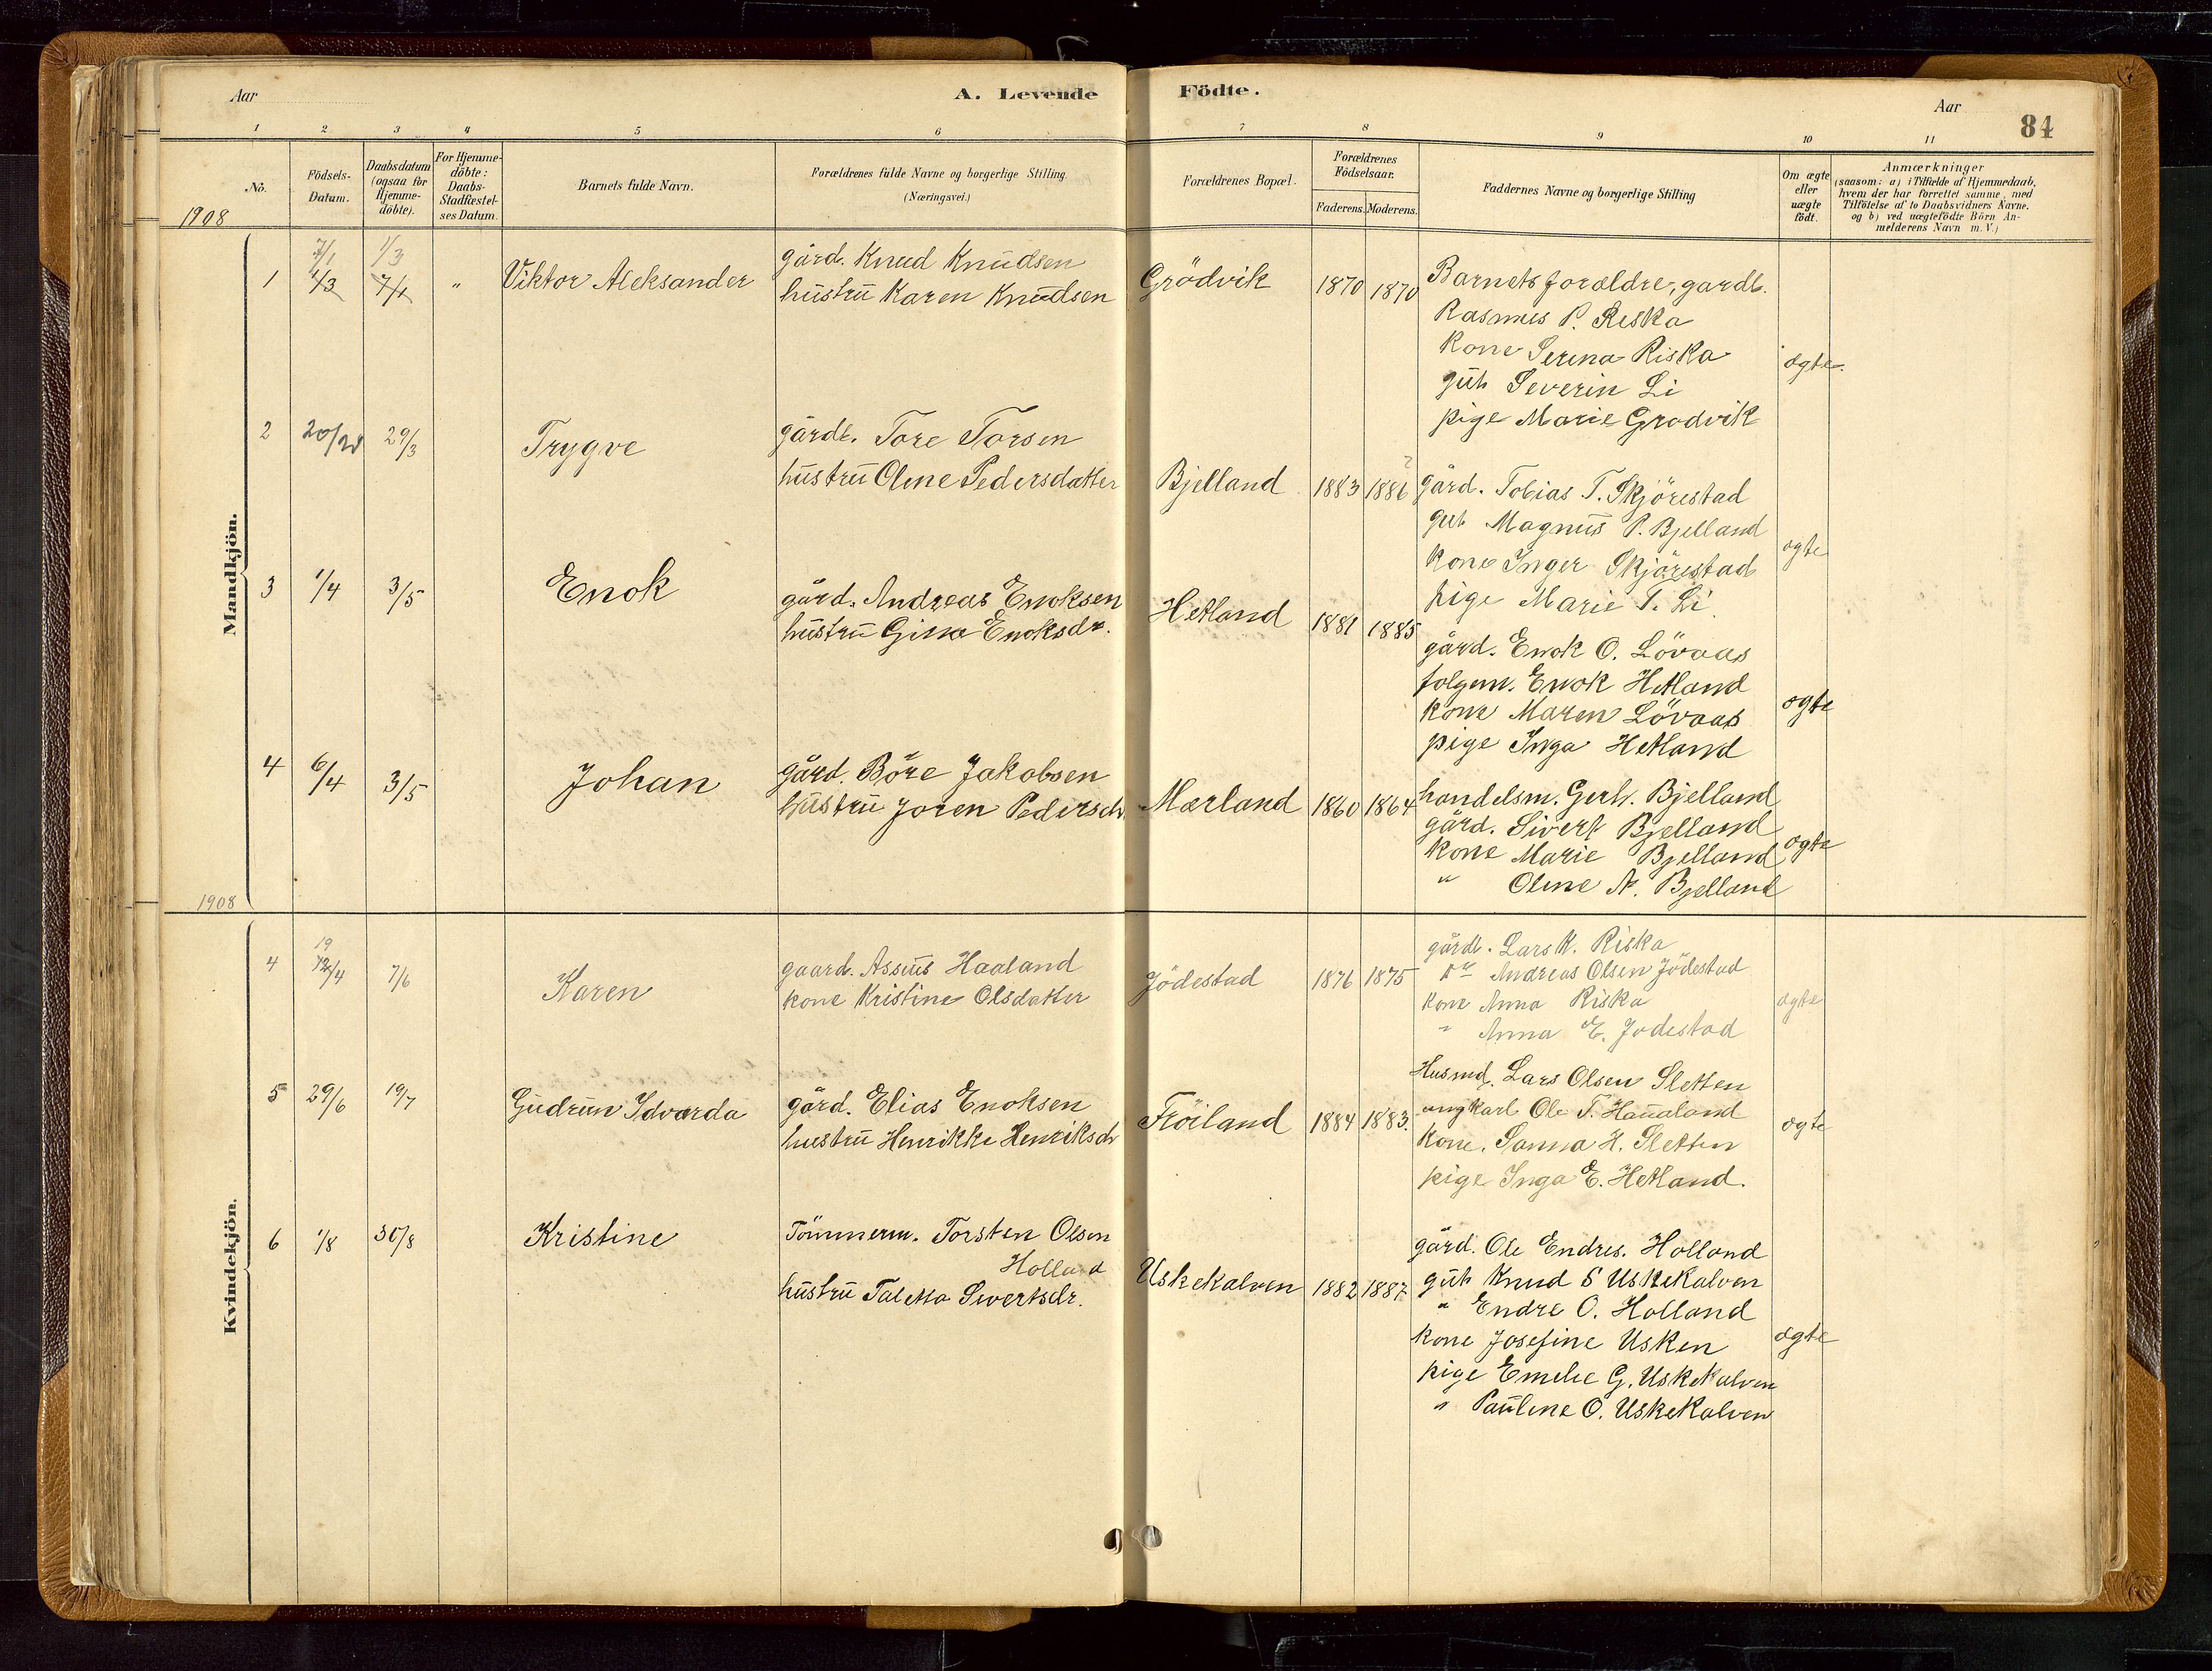 Aar
A. Levende
Födte.
Aar
84
1
2
3
4
5
6
7
8
9
10
11
No.
Födsels-
Datum.
Daabsdatum
(ogsaa for
Hjemme-
döbte).
For Hjemme-
döbte:
Daabs-
Stadfæstel-
ses Datum.
Barnets fulde Navn.
Forældrenes fulde Navne og borgerlige Stilling
(Næringsvei.)
Forældrenes Bopæl.
Forældrenes
Födselsaar.
Faderens.
Moderens.
Faddernes Navne og borgerlige Stilling
Om ægte
eller
uægte
födt.
Anmærkninger
(saasom: a) i Tilfælde af Hjemmedaab,
hvem der har forrettet samme, med
Tilföielse af to Daabsvidners Navne,
og b) ved uægtefödte Börn An-
melderens Navn m. V.)
1908
Mandkjön.
1
7/1
1/3
1/3
7/1
"
Viktor Aleksander
gård. Knud Knudsen
hustru Karen Knudsen
Grödvik
1870
1870
Barnets forældre, gardb.
Rasmus P. Riska
kone Serina Riska
gut Severin Li
pige Marie Grodvik
ægte.
2
29/3
Trygve
gårdb. Tore Torsen
hustru Oline Pedersdatter
Bjelland
1883
1886
?
gård. Tobias T. Skjörestad
gut Magnus P. Bjelland
kone Inger Skjörestad
pige Marie T. Li
ægte
3
1/4
3/5
Enok
gård. Andreas Enoksen
hustru Gina Enoksdr.
Hetland
1881
1885
gård. Enok O. Lövaas
folgem. Enok Hetland
kone Maren Lövaas
pige Inga Hetland
ægte
4
6/4
3/5
Johan
gård. Böre Jakobsen
hustru Joren Pedersdr
Mærland
1860
1864
handelsm. Gerh. Bjelland
gård. Sivert Bjelland
kone Marie Bjelland
" Oline N. Bjelland
ægte
1908
Kvindekjön.
4
19
12/4
7/6
Karen
gaard. Assus Haaland
kone Kristine Olsdatter
Jödestad
1876
1875
gårdb. Lars K. Riska
Do Andreas Olsen Jödestad
kone Anna Riska
" Anna E. Jodestad
ægte
5
29/6
19/7
Gudrun Edvarda
gård. Elias Enoksen
hustru Henrikke Henriksdr
Fröiland
1884
1883.
Husmd. Lars Olsen Sletten
ungkarl Ole T. Haualand
kone. Sanna H. Sletten
pige Inga E. Hetland.
ægte
6
1/8
30/8
Kristine
Tömmerm. Torsten Olsen
Holland
hustru Taletta Sivertsdr.
Uskekalven
1882
1887
gård. Ole Endres. Holland
gut Knud S Uskekalven
" Endre O. Holland
kone Josefine Usken
pige Emelie G. Uskekalven
" Pauline O. Uskekalven
ægte